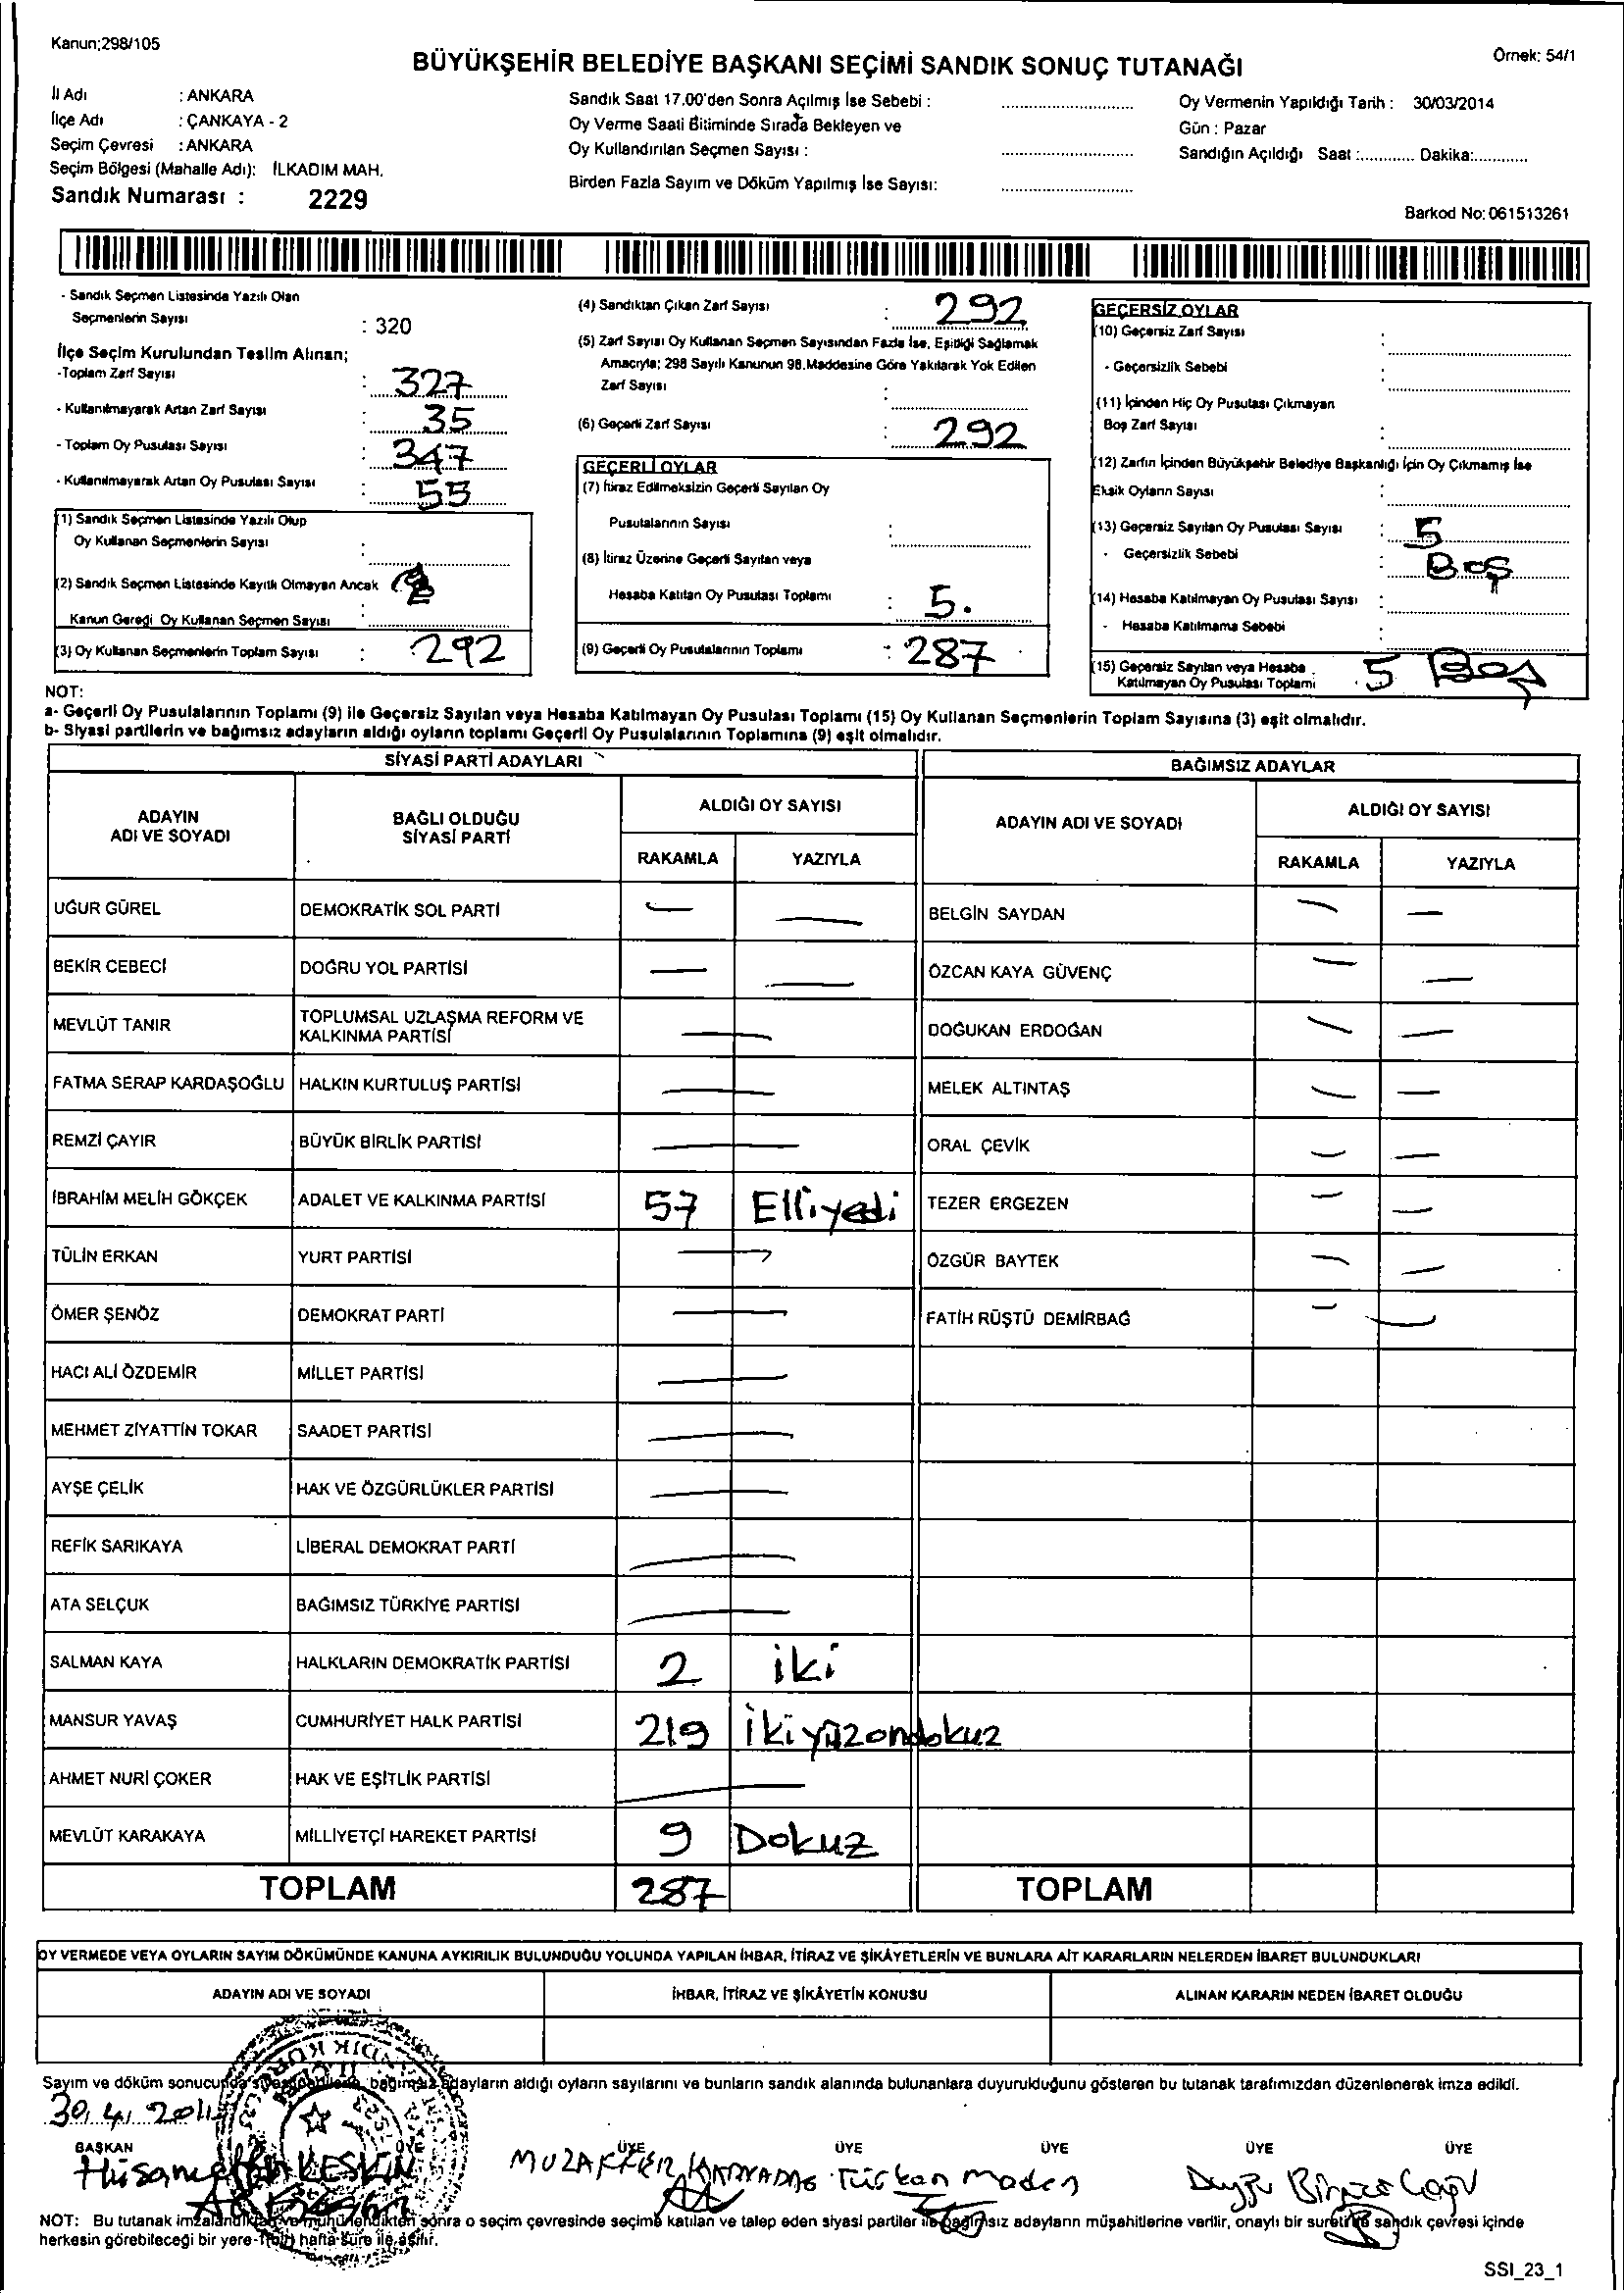 Kanun;298/105
Örnek: 54/1
BÜYÜKŞEHİR BELEDİYE BAŞKANI SEÇİMİ SANDIK SONUÇ TUTANAĞI
İl Adı : ANKARA
İlçe Adı : ÇANKAYA - 2
Seçim Çevresi : ANKARA
Seçim Bölgesi (Mahalle Adı): İLKADIM MAH.
Sandık Numarası : 2229
Sandık Saat 17.00'den Sonra Açılmış İse Sebebi :
Oy Verme Saati Bitiminde Sırada Bekleyen ve
Oy Kullandırılan Seçmen Sayısı :
Birden Fazla Sayım ve Döküm Yapılmış İse Sayısı:
Oy Vermenin Yapıldığı Tarih : 30/03/2014
Gün : Pazar
Sandığın Açıldığı Saat :............ Dakika:............
Barkod No: 061513261
- Sandık Seçmen Listesinde Yazılı Olan
Seçmenlerin Sayısı : 320
İlçe Seçim Kurulundan Teslim Alınan;
-Toplam Zarf Sayısı : 327
- Kullanılmayarak Artan Zarf Sayısı : 35
- Toplam Oy Pusulası Sayısı : 347
- Kullanılmayarak Artan Oy Pusulası Sayısı : 55
(1) Sandık Seçmen Listesinde Yazılı Olup
Oy Kullanan Seçmenlerin Sayısı :
(2) Sandık Seçmen Listesinde Kayıtlı Olmayan Ancak
Kanun Gereği Oy Kullanan Seçmen Sayısı :
(3) Oy Kullanan Seçmenlerin Toplam Sayısı : 292
(4) Sandıktan Çıkan Zarf Sayısı : 292
(5) Zarf Sayısı Oy Kullanan Seçmen Sayısından Fazla İse, Eşitliği Sağlamak
Amacıyla; 298 Sayılı Kanunun 98.Maddesine Göre Yakılarak Yok Edilen
Zarf Sayısı :
(6) Geçerli Zarf Sayısı : 292
GEÇERLİ OYLAR
(7) İtiraz Edilmeksizin Geçerli Sayılan Oy
Pusulalarının Sayısı :
(8) İtiraz Üzerine Geçerli Sayılan veya
Hesaba Katılan Oy Pusulası Toplamı : 5.
(9) Geçerli Oy Pusulalarının Toplamı : 287
GEÇERSİZ OYLAR
(10) Geçersiz Zarf Sayısı :
- Geçersizlik Sebebi :
(11) İçinden Hiç Oy Pusulası Çıkmayan
Boş Zarf Sayısı :
(12) Zarfın İçinden Büyükşehir Belediye Başkanlığı İçin Oy Çıkmamış İse
Eksik Oyların Sayısı :
(13) Geçersiz Sayılan Oy Pusulası Sayısı : 5
- Geçersizlik Sebebi : Boş
(14) Hesaba Katılmayan Oy Pusulası Sayısı :
- Hesaba Katılmama Sebebi :
(15) Geçersiz Sayılan veya Hesaba
Katılmayan Oy Pusulası Toplamı : 5 Boş
NOT:
a- Geçerli Oy Pusulalarının Toplamı (9) ile Geçersiz Sayılan veya Hesaba Katılmayan Oy Pusulası Toplamı (15) Oy Kullanan Seçmenlerin Toplam Sayısına (3) eşit olmalıdır.
b- Siyasi partilerin ve bağımsız adayların aldığı oyların toplamı Geçerli Oy Pusulalarının Toplamına (9) eşit olmalıdır.
SİYASİ PARTİ ADAYLARI
BAĞIMSIZ ADAYLAR
ADAYIN ADI VE SOYADI
BAĞLI OLDUĞU SİYASİ PARTİ
ALDIĞI OY SAYISI
RAKAMLA YAZIYLA
ADAYIN ADI VE SOYADI
ALDIĞI OY SAYISI
RAKAMLA YAZIYLA
UĞUR GÜREL DEMOKRATİK SOL PARTİ — — BELGİN SAYDAN — —
BEKİR CEBECİ DOĞRU YOL PARTİSİ — — ÖZCAN KAYA GÜVENÇ — —
MEVLÜT TANIR TOPLUMSAL UZLAŞMA REFORM VE KALKINMA PARTİSİ — DOĞUKAN ERDOĞAN — —
FATMA SERAP KARDAŞOĞLU HALKIN KURTULUŞ PARTİSİ — MELEK ALTINTAŞ — —
REMZİ ÇAYIR BÜYÜK BİRLİK PARTİSİ — ORAL ÇEVİK — —
İBRAHİM MELİH GÖKÇEK ADALET VE KALKINMA PARTİSİ 57 Elliyedi TEZER ERGEZEN — —
TÜLİN ERKAN YURT PARTİSİ — ÖZGÜR BAYTEK — —
ÖMER ŞENÖZ DEMOKRAT PARTİ — FATİH RÜŞTÜ DEMİRBAĞ — —
HACI ALİ ÖZDEMİR MİLLET PARTİSİ —
MEHMET ZİYATTİN TOKAR SAADET PARTİSİ —
AYŞE ÇELİK HAK VE ÖZGÜRLÜKLER PARTİSİ —
REFİK SARIKAYA LİBERAL DEMOKRAT PARTİ —
ATA SELÇUK BAĞIMSIZ TÜRKİYE PARTİSİ —
SALMAN KAYA HALKLARIN DEMOKRATİK PARTİSİ 2 iki
MANSUR YAVAŞ CUMHURİYET HALK PARTİSİ 219 ikiyüzondokuz
AHMET NURİ ÇOKER HAK VE EŞİTLİK PARTİSİ —
MEVLÜT KARAKAYA MİLLİYETÇİ HAREKET PARTİSİ 9 Dokuz
TOPLAM 287 TOPLAM
OY VERMEDE VEYA OYLARIN SAYIM DÖKÜMÜNDE KANUNA AYKIRILIK BULUNDUĞU YOLUNDA YAPILAN İHBAR, İTİRAZ VE ŞİKÂYETLERİN VE BUNLARA AİT KARARLARIN NELERDEN İBARET BULUNDUKLARI
ADAYIN ADI VE SOYADI İHBAR, İTİRAZ VE ŞİKÂYETİN KONUSU ALINAN KARARIN NEDEN İBARET OLDUĞU
Sayım ve döküm sonucunda bağımsız adayların aldığı oyların sayılarını ve bunların sandık alanında bulunanlara duyurulduğunu gösteren bu tutanak tarafımızdan düzenlenerek imza edildi.
BAŞKAN ÜYE ÜYE ÜYE ÜYE ÜYE ÜYE
KESKİN MUZAFFER Türkan maden Duygu
NOT: Bu tutanak imzalandıktan ve mühürlendikten sonra o seçim çevresinde seçime katılan ve talep eden siyasi partiler ile bağımsız adayların müşahitlerine verilir, onaylı bir sureti de sandık çevresi içinde
herkesin görebileceği bir yere hafta süre ile asılır.
SSI_23_1